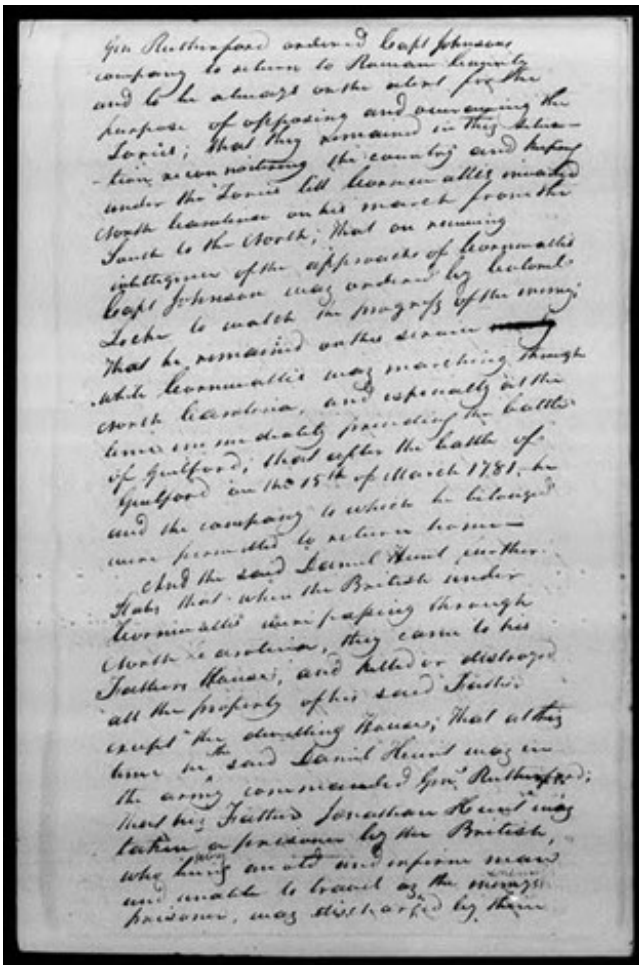 Gen Rutherford ordered Capt Johnsons
company to return to Rowan County
and to be always on the alert for the
purpose of opposing and overawing the
Tories; that they remained in this situa-
-tion reconnoitering the country and keeping
under the Tories till Cornwallis invaded
North Carolina on his march from the
South to the North; that on receiving
intelligence of the approach of Cornwallis
Capt Johnson was ordered by Colonel
Locke to watch the progress of the enemy;
that he remained on this service
while Cornwallis was marching through
North Carolina, and especially at the
time immediately preceding the battle
of Guilford; that after the battle of
Guilford on the 15th of March 1781 he
and the company to which he belonged
were permitted to return home—
And the said Daniel Hunt further
States that when the British under
Cornwallis were passing through
North Carolina, they came to his
Fathers House, and killed or distroyd
all the property of his said Father
except the dwelling House; that at this
time he the said Daniel Hunt was in
the army commanded Genl Rutherford;
that his Father Jonathan Hunt was
taken a prisoner by the British,
who being an old and infirm man
and unable to travel as the enemys
prisoner, was discharged by them